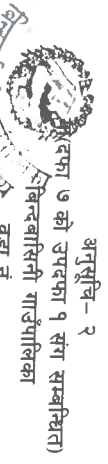 अनुसूचि- २
(दफा ७ को उपदफा १ संग सम्बन्धित)
बिन्दबासिनी गाउंपालिका
वडा नं